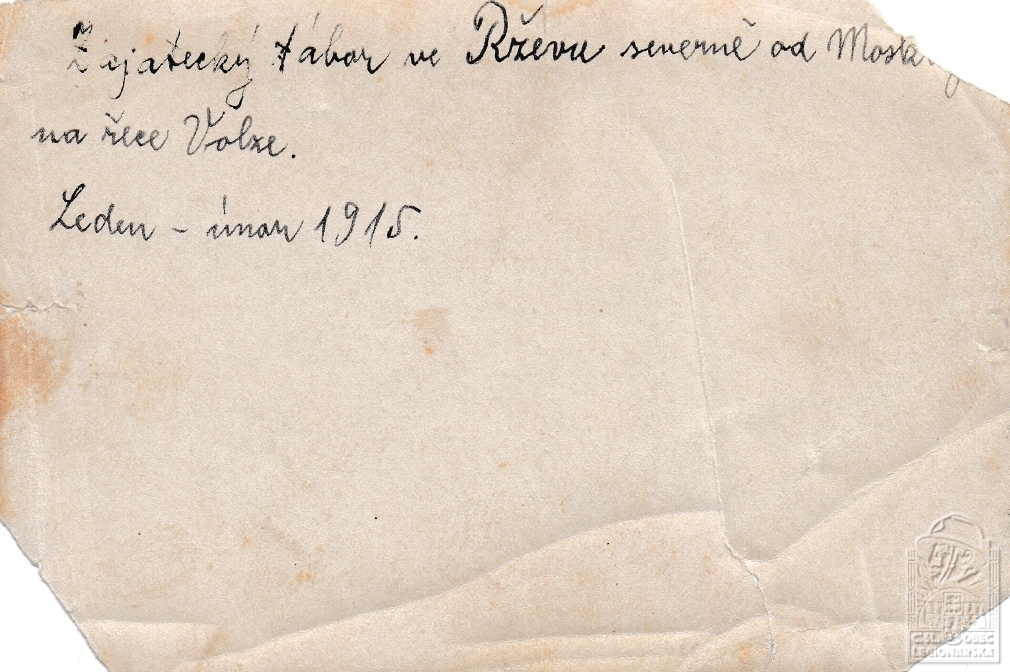 Zajatecký tábor ve Rževu severně od Moskvy
na řece Volze.
Leden – únor 1915.
ČSL. OBEC
LEGIONÁŘSKÁ